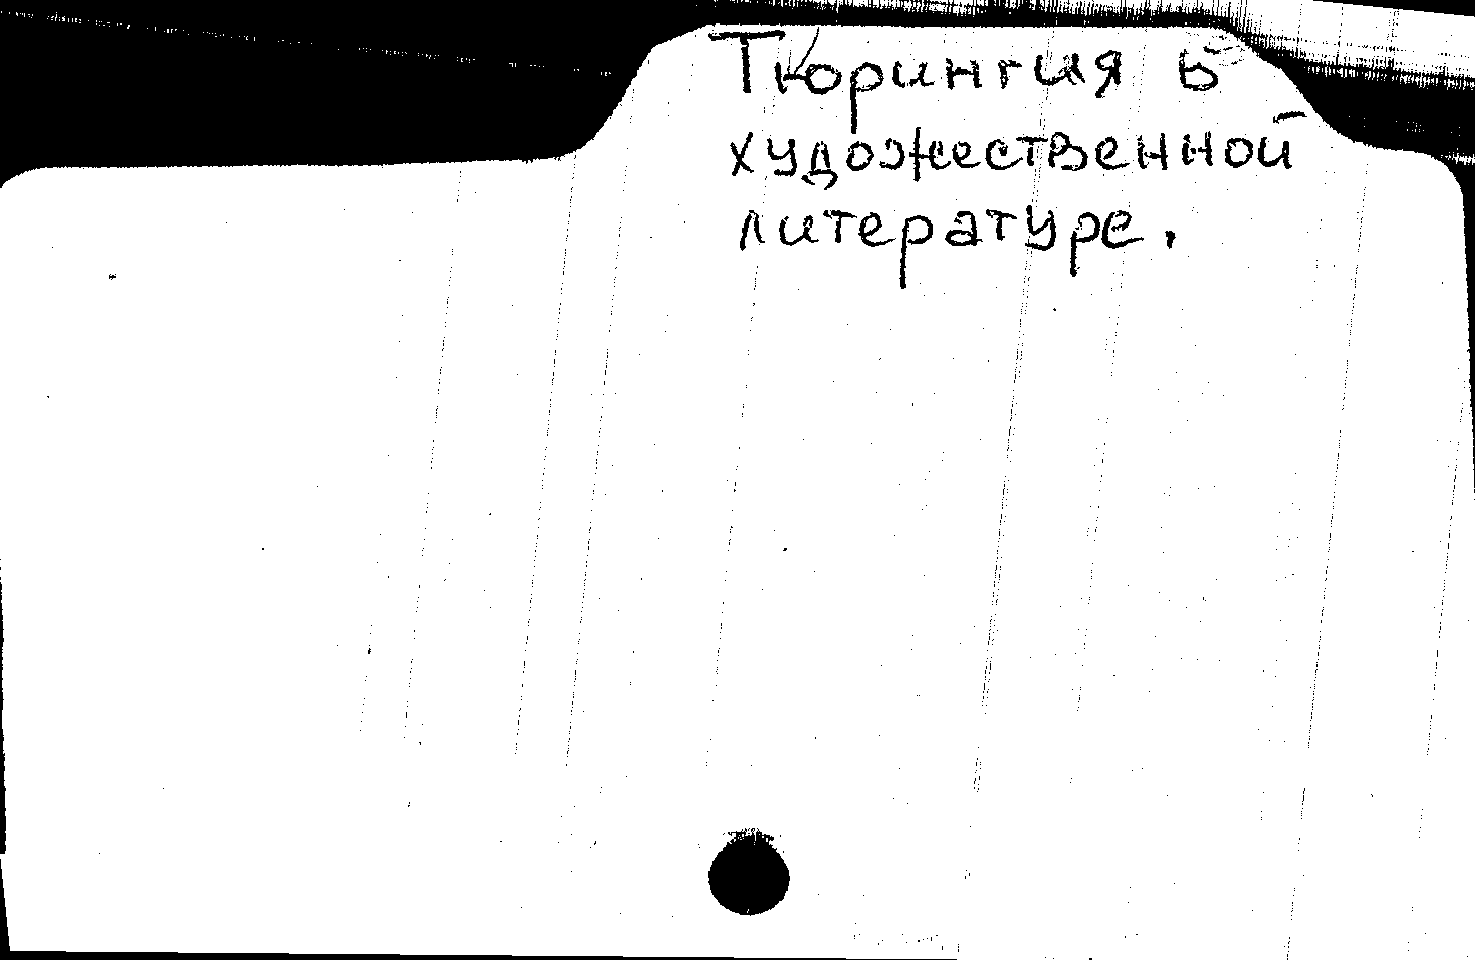 Тюрингия в
художественной
литературе.